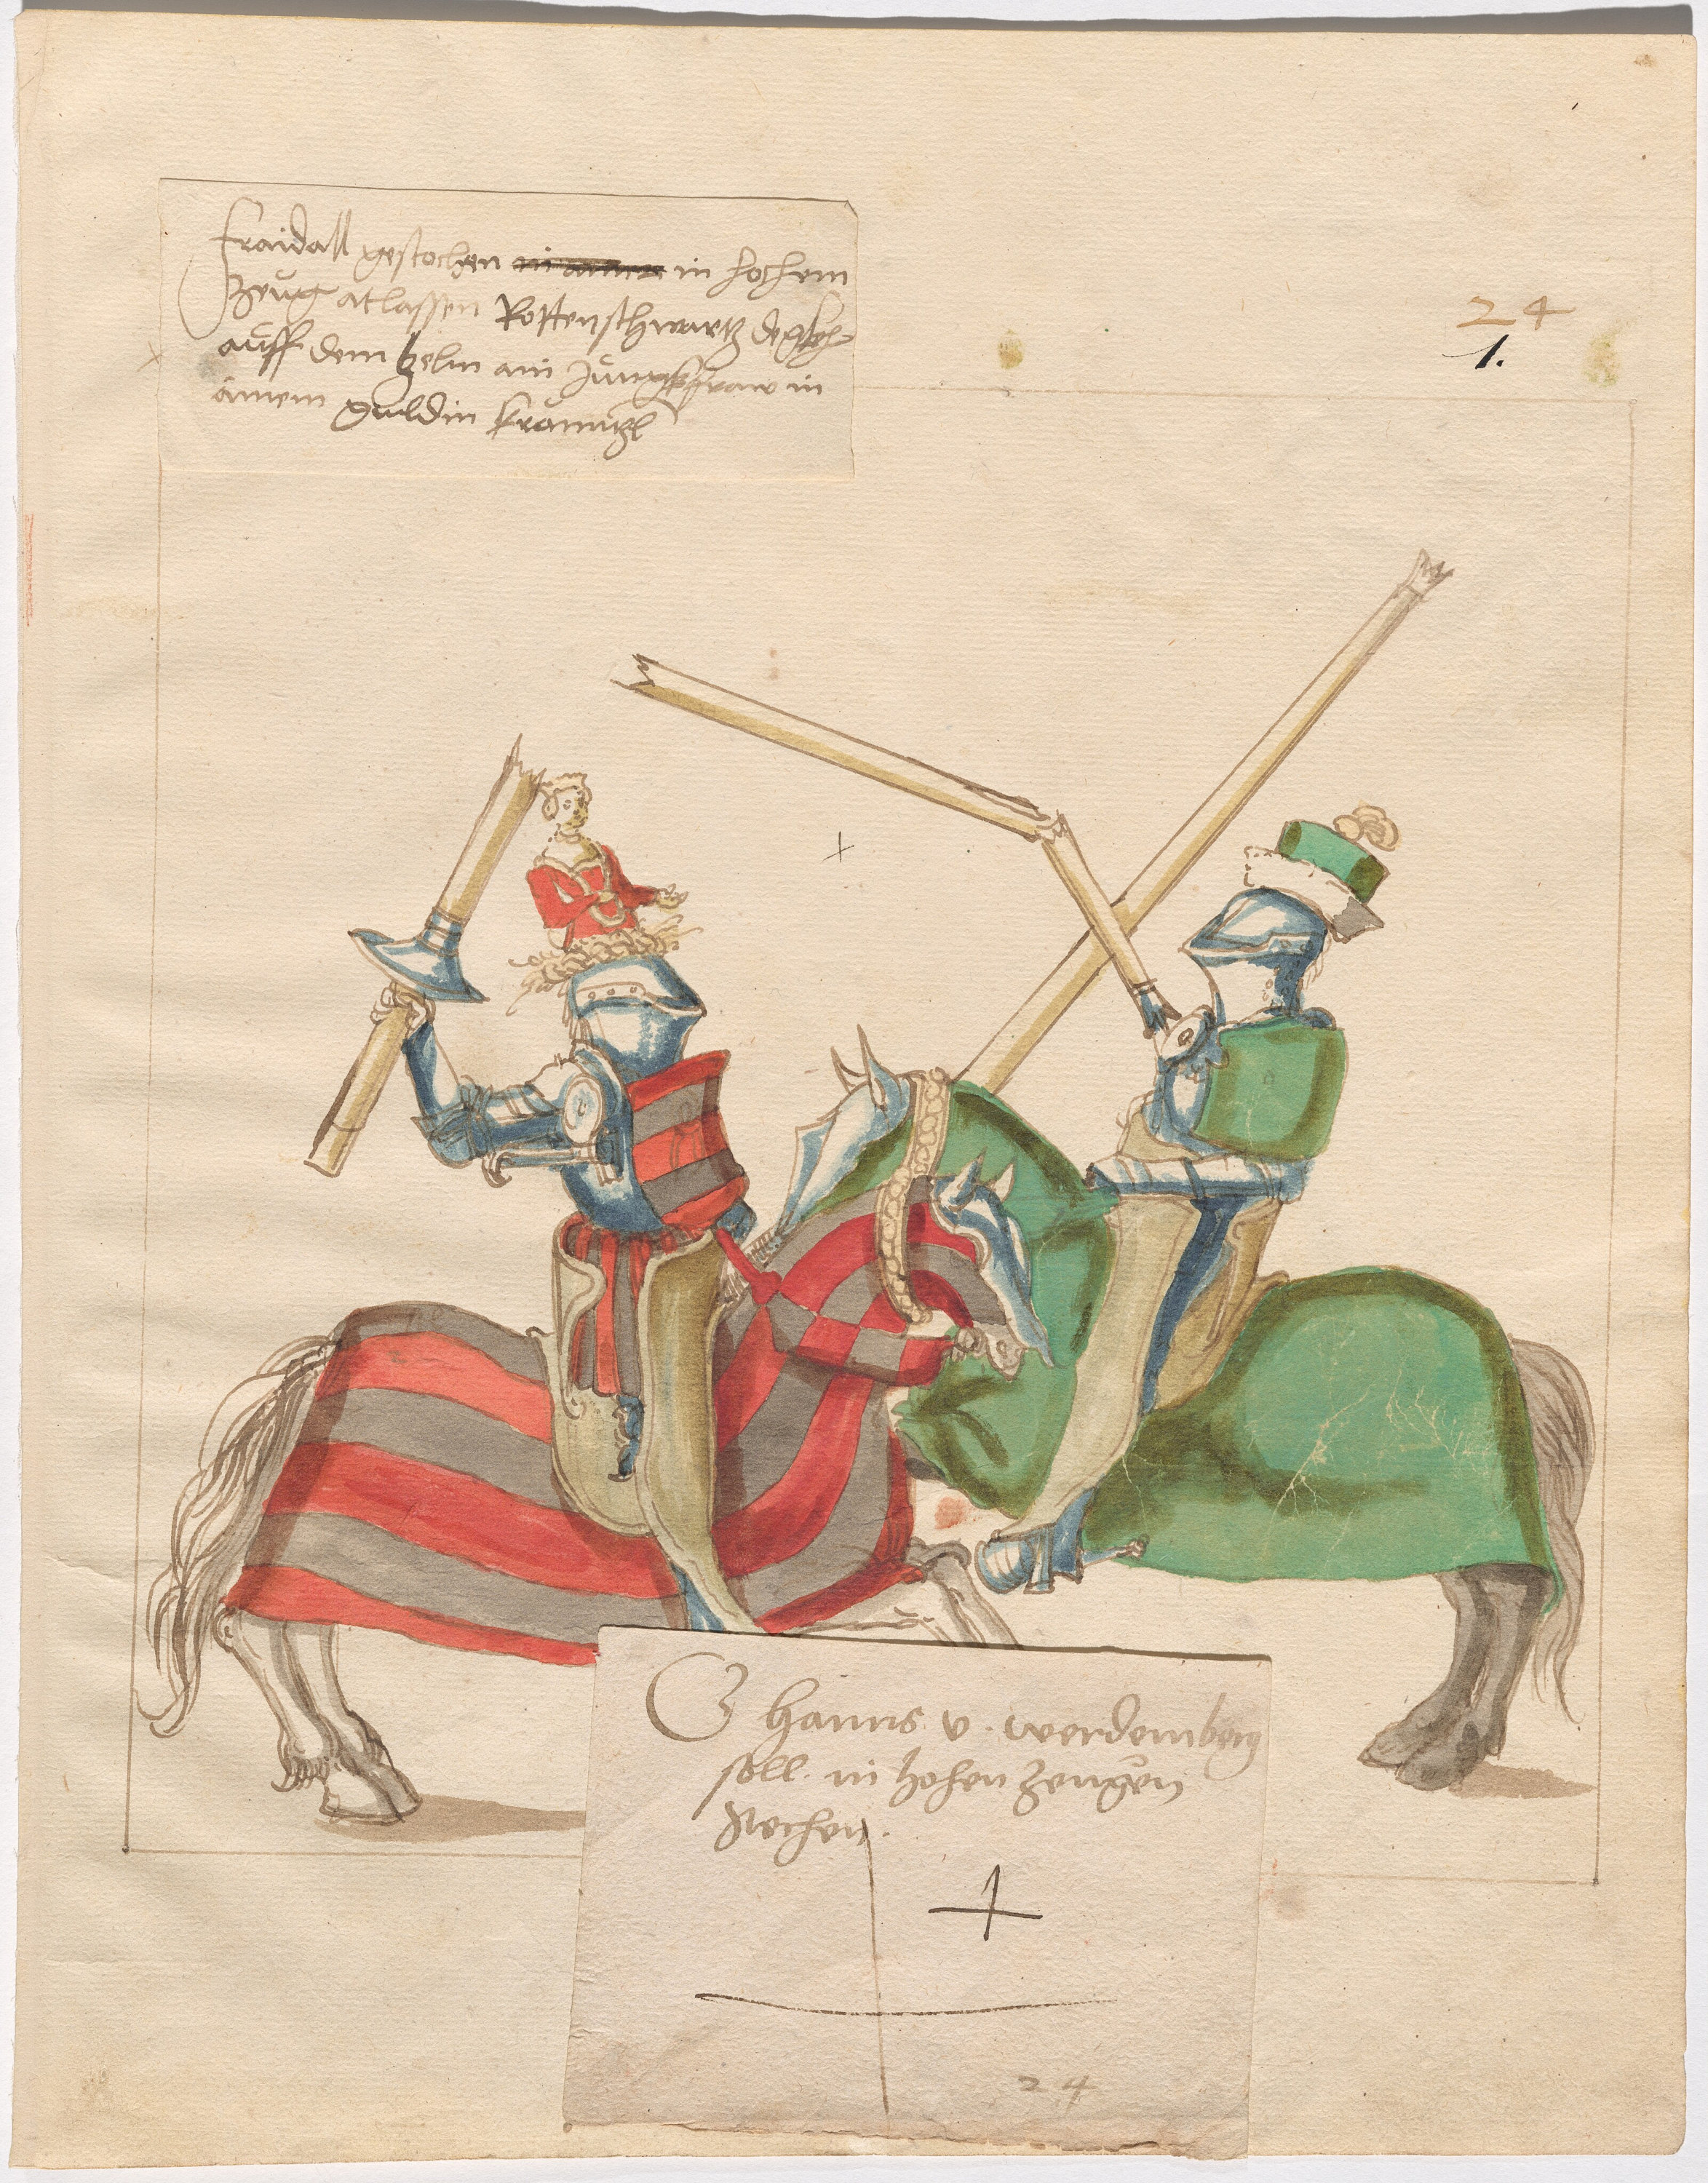 fraidall gestochen in hochem
Zeug atlassen Rottenschwartz deckch
auff dem helm ain Junckfraw in
ainem guldin krenntzl
24
1.
G hanns v. werdemberg
soll. in hohen Zeugen
Stechen.
24